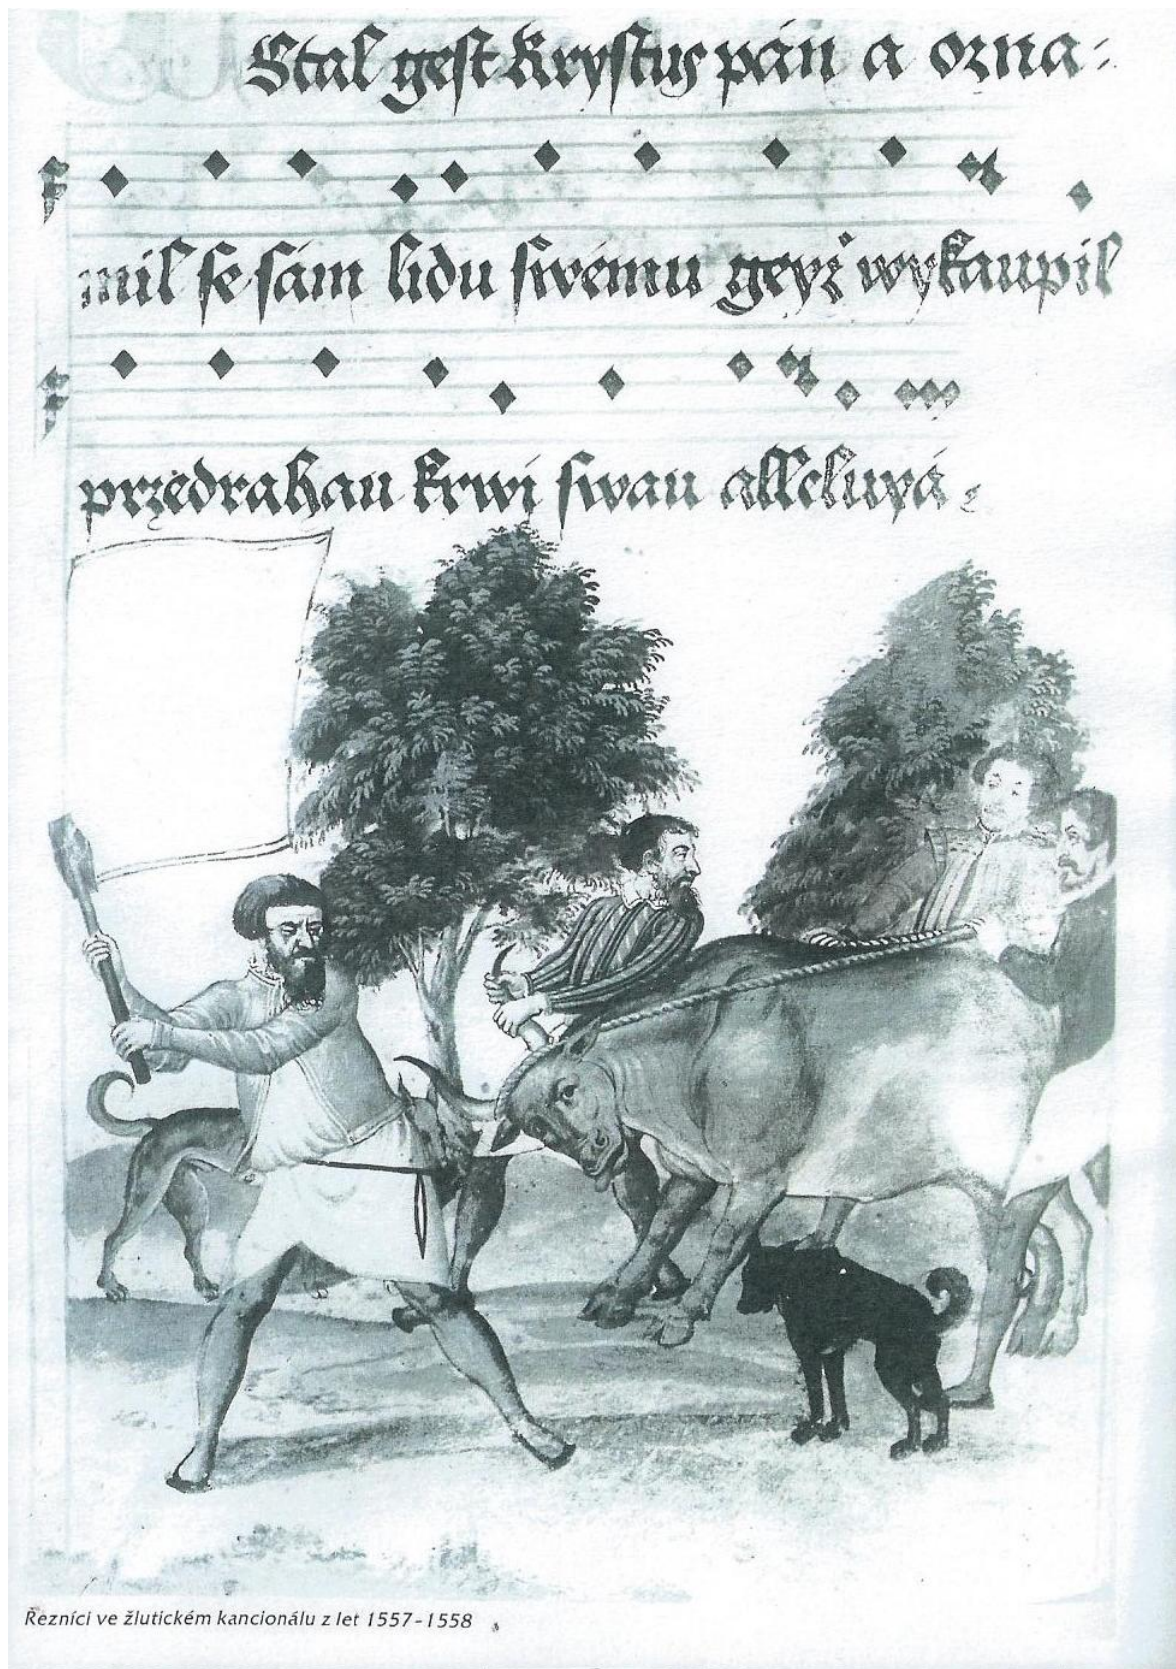 Stal gest Krystus pán a ozna-
mil se sám lidu swému geyž wykaupil
przedrahau krwi swau alleluya
Řezníci ve žlutickém kancionálu z let 1557-1558